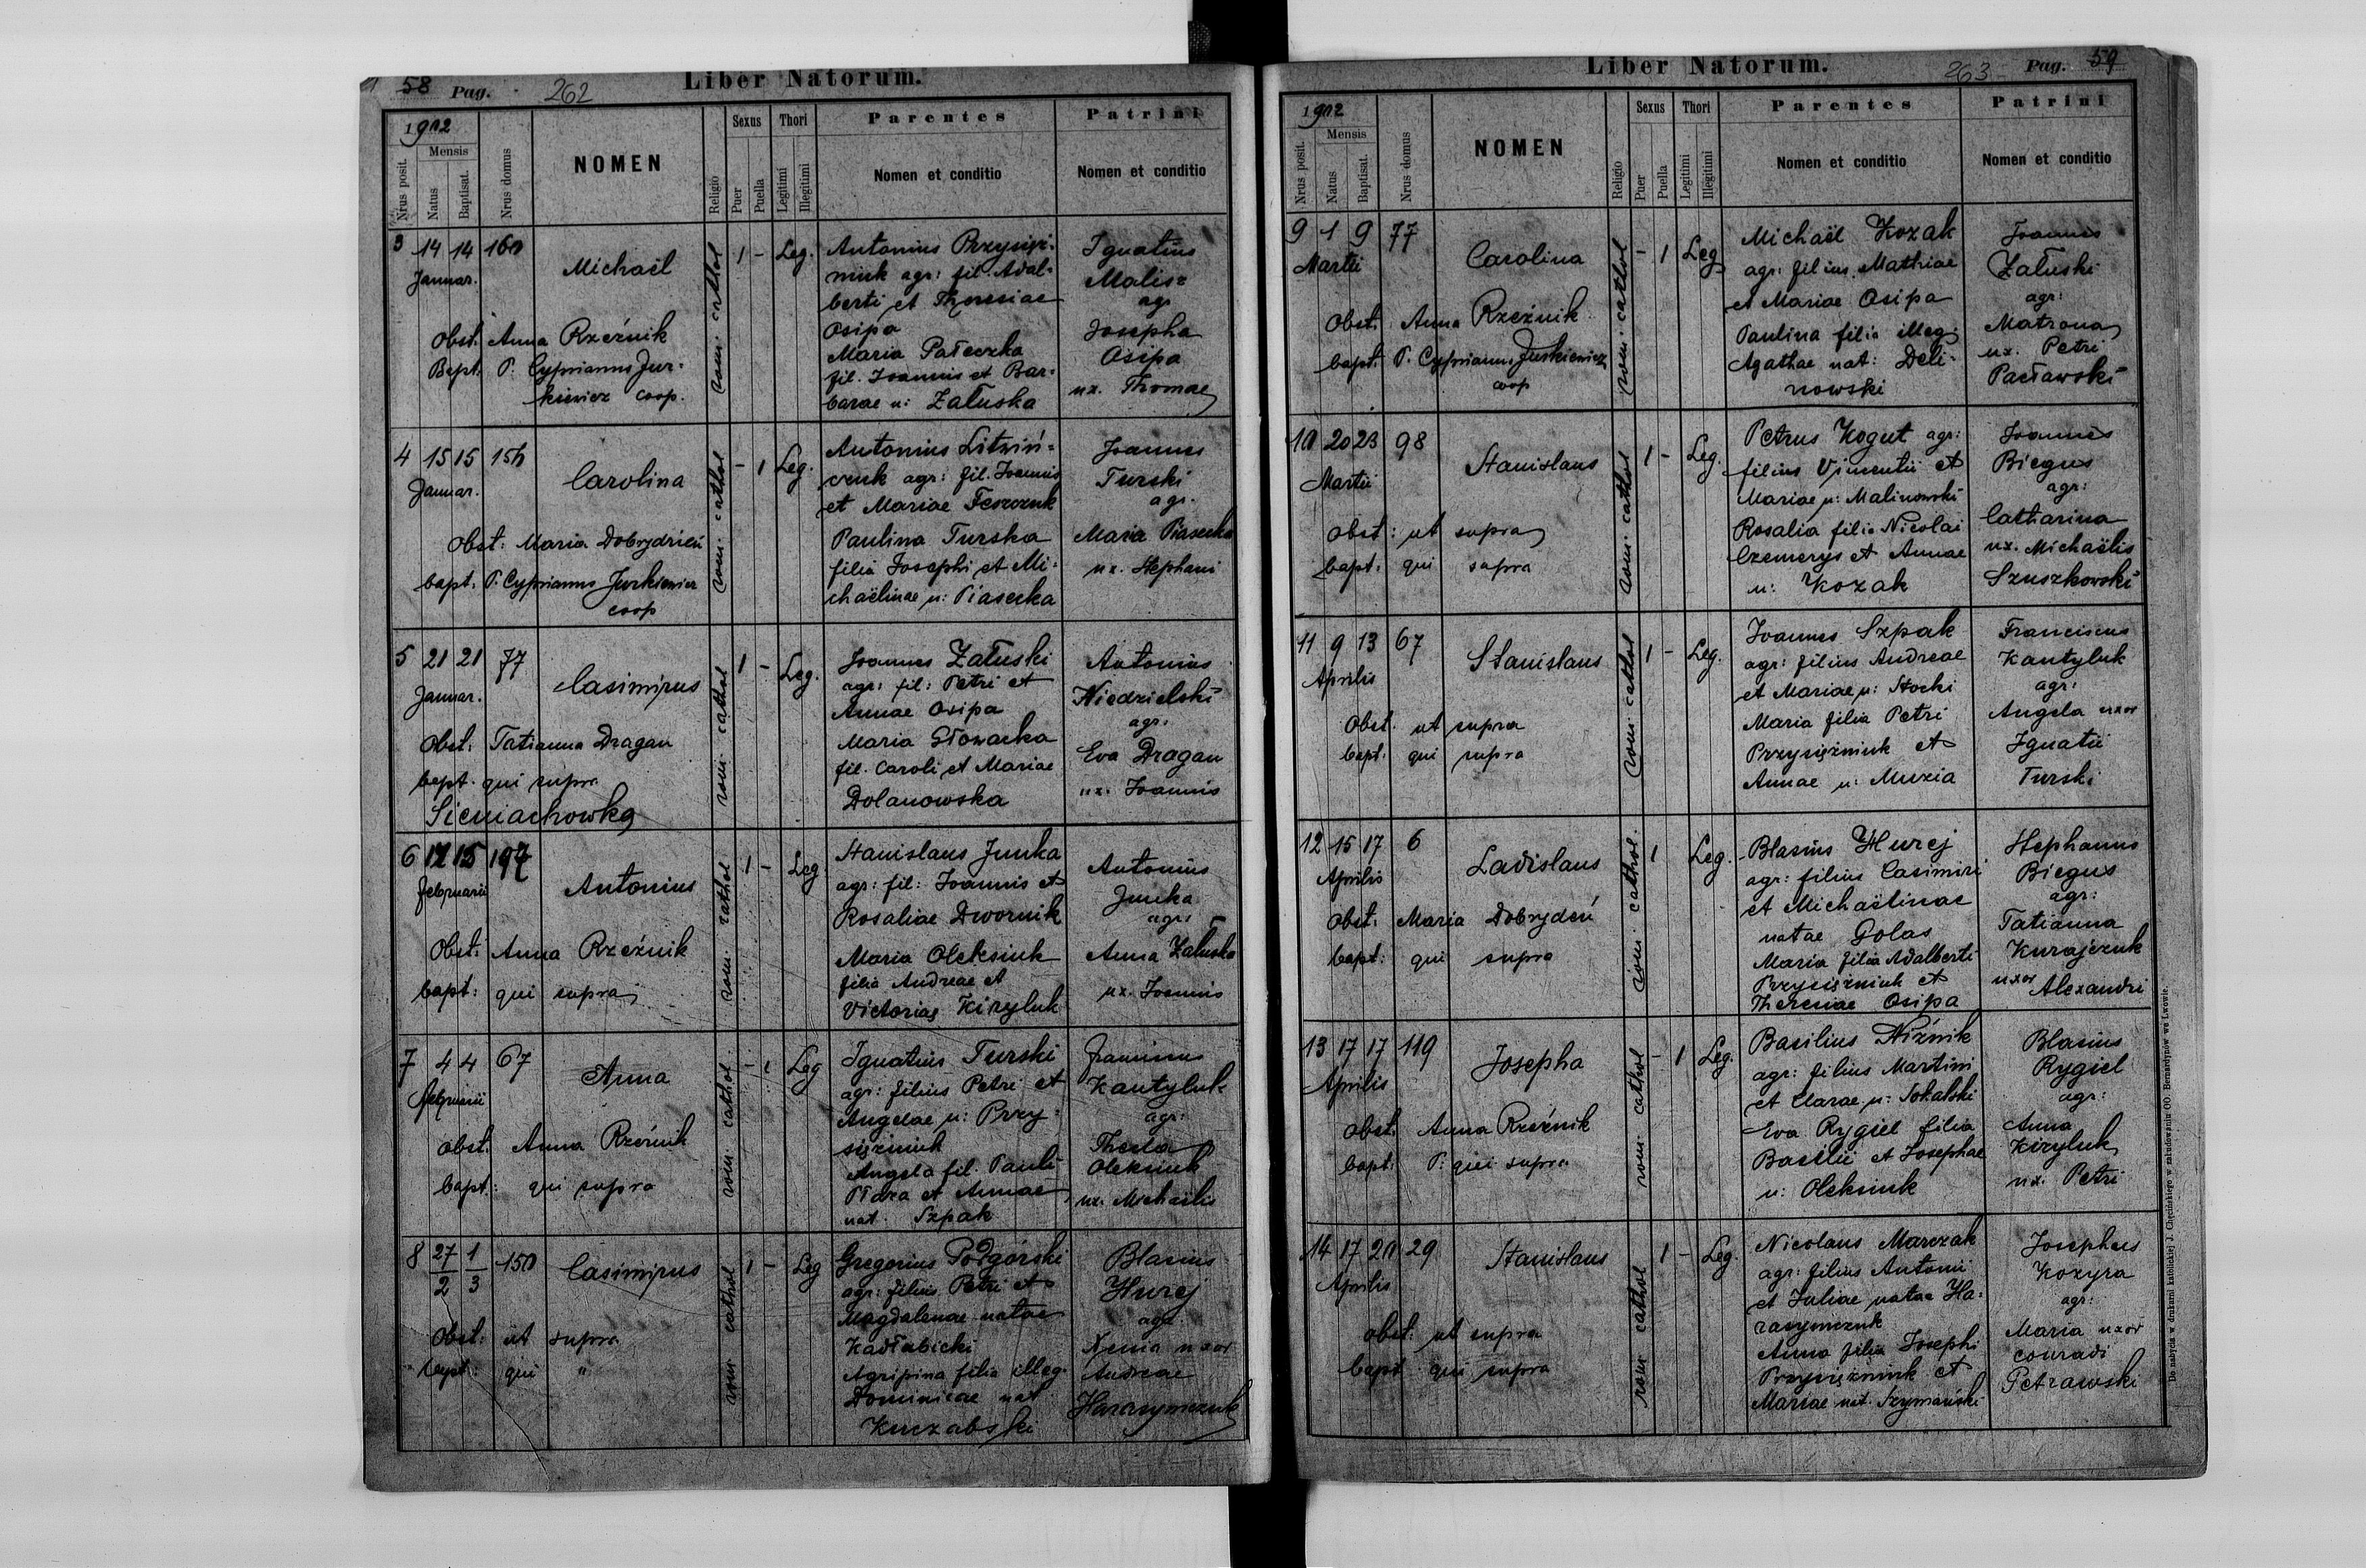 58 Pag. 262 Liber Natorum.
1902
Mensis
Nrus posit.
Natus
Baptisat.
Nrus domus
NOMEN
Religio
Sexus
Puer
Puella
Thori
Legitimi
Illegitimi
Parentes
Nomen et conditio
Patrini
Nomen et conditio
3 14 14 160
Januar.
Michaël
Obst. Anna Rzeźnik
Bapt. P. Cyprianus Jur-
kiewicz coop.
rom. cathol
1 - Leg.
Antonius Przysięż-
niuk agr: fil. Adal-
berti et Theresiae
Osipa
Maria Pałeczka
fil. Joannis et Bar-
barae n: Załuska
Ignatius
Malis=
agr
Josepha
Osipa
ux. Thomae
4 15 15 156
Januar.
Carolina
Obst: Maria Dobrydzień
bapt. P. Cyprianus Jurkiewicz
coop
rom. cathol
- 1 Leg.
Antonius Litwiń=
czuk agr: fil. Joannis
et Mariae Feszczuk
Paulina Turska
filia Josephi et Mi-
chaëlinae n: Piasecka
Joannes
Turski
agr.
Maria Piasecka
ux. Stephani
5 21 21 77
Januar.
Casimirus
Obst: Tatianna Dragan
bapt. qui supra
Sieniachowka
rom. cathol
1 - Leg.
Joannes Załuski
agr: fil: Petri et
Annae Osipa
Maria Słowacka
fil. Caroli et Mariae
Dolanowska
Antonius
Niedzielski
agr.
Eva Dragan
ux. Joannis
6 12 15 197
februarii
Antonius
Obst: Anna Rzeźnik
bapt: qui supra
rom. cathol
1 - Leg
Stanislaus Junka
agr: fil: Joannis et
Rosaliae Dwornik
Maria Oleksiuk
filia Andreae et
Victoriae Kiryluk
Antonius
Junka
agr:
Anna Załuska
ux. Joannis
7 4 4 67
februarii
Anna
Obst. Anna Rzeźnik
bapt: qui supra
rom. cathol
- 1 Leg
Ignatius Turski
agr: filius Petri et
Angelae n: Przy-
siężniuk
Angela fil. Pauli
et Annae
nat. Szpak
Franciscus
Kantyluk
agr:
Thecla
Oleksiuk
ux. Michaëlis
8 27/2 1/3 150
Casimirus
Obst: ut supra
bapt: qui "
rom cathol
1 - Leg
Gregorius Podgórski
agr: filius Petri et
Magdalenae natae
Kadłubicki
Agripina filia illeg.
Dominicae nat
Kuczabski
Blasius
Hurej
agr.
Xenia uxor
Andreae
Harasymczuk
Liber Natorum. 263 Pag. 59
1902
Mensis
Nrus posit.
Natus
Baptisat.
Nrus domus
NOMEN
Religio
Sexus
Puer
Puella
Thori
Legitimi
Illegitimi
Parentes
Nomen et conditio
Patrini
Nomen et conditio
9 1 9 77
Martii
Carolina
Obst. Anna Rzeźnik
bapt. P. Cyprianus Jurkiewicz
coop
rom. cathol
- 1 Leg
Michaël Kozak
agr: filius Mathiae
et Mariae Osipa
Paulina filia illeg.
Agathae nat. Deli-
nowski
Joannes
Załuski
agr:
Matrona
ux. Petri
Pacławski
10 20 23 98
Martii
Stanislaus
Obst: ut supra
bapt: qui supra
rom. cathol
1 - Leg.
Petrus Kogut agr:
filius Vincentii et
Mariae n: Malinowski
Rosalia filia Nicolai
Czemerys et Annae
n: Kozak
Joannes
Biegus
agr:
Catharina
ux. Michaëlis
Szuszkowski
11 9 13 67
Aprilis
Stanislaus
Obst. ut supra
bapt: qui supra
rom. cathol
1 - Leg.
Joannes Szpak
agr: filius Andreae
et Mariae n: Stocki
Maria filia Petri
Przysiężniuk et
Annae n: Muzia
Franciscus
Kantyluk
agr:
Angela uxor
Ignatii
Turski
12 15 17 6
Aprilis
Ladislaus
Obst: Maria Dobrydeń
bapt: qui supra
rom. cathol.
1 Leg.
Blasius Hurej
agr: filius Casimiri
et Michaëlinae
natae Golas
Maria filia Adalberti
Przysiężniuk et
Theresiae Osipa
Stephanus
Biegus
agr:
Tatianna
Kurajczuk
uxor Alexandri
13 17 17 119
Aprilis
Josepha
Obst. Anna Rzeźnik
bapt: P. qui supra
rom. cathol
- 1 Leg.
Basilius Niźnik
agr: filius Martini
et Clarae n: Sokalski
Eva Rygiel filia
Basilii et Josephae
n: Oleksiuk
Blasius
Rygiel
agr:
Anna
Kiryluk
ux. Petri
14 17 20 29
Aprilis
Stanislaus
obst: ut supra
bapt qui supra
rom cathol
1 - Leg.
Nicolaus Marczak
agr: filius Antonii
et Juliae natae Ha-
rasymczuk
Anna filia Josephi
Przysiężniuk et
Mariae nat. Szymański
Josephus
Kozyra
agr:
Maria uxor
conradi
Petrawski
Do nabycia w drukarni katolickiej J. Chęcińskiego w zabudowaniu OO. Bernardynów we Lwowie.